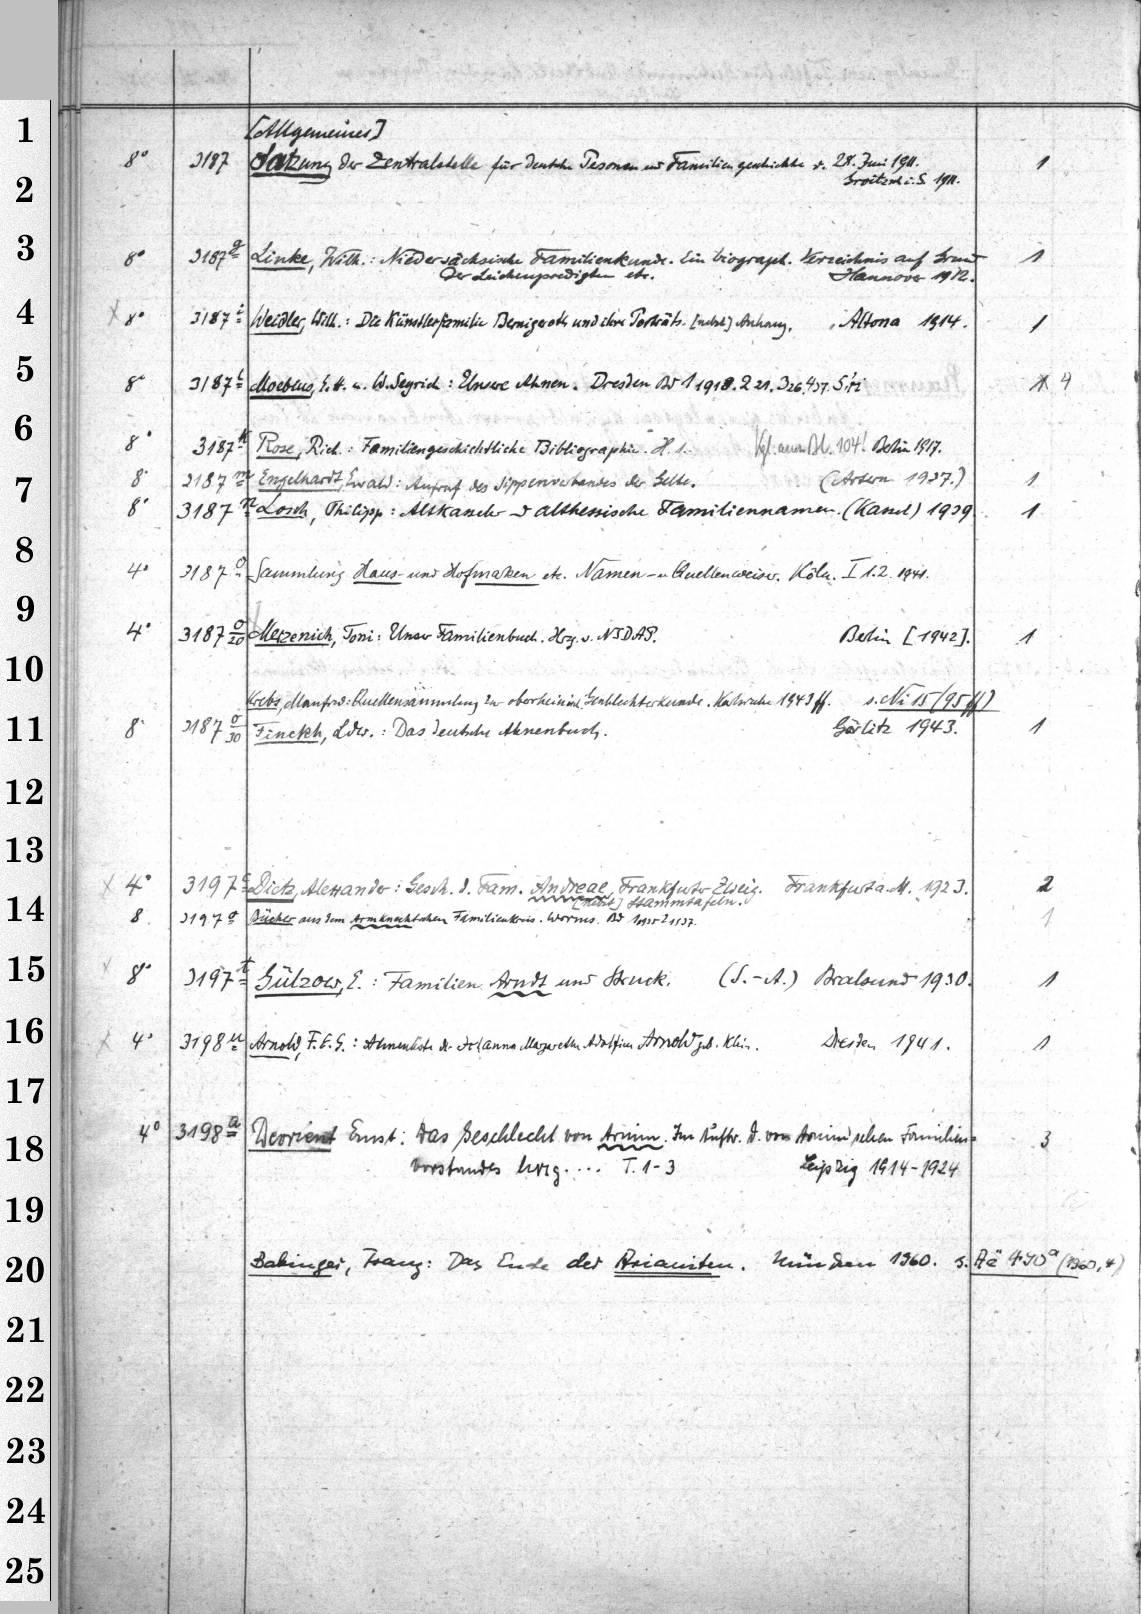 [Allgemeines]
1
8° 3187 Satzung der Zentralstelle für deutsche Personen und Familiengeschichte v. 28. Juni 1911. 1
Groitzsch i. S. 1911.
2
3
8° 3187 g Linke, Wilh.: Niedersächsische Familienkunde. Ein biograph. Verzeichnis auf Grund 1
der Leichenpredigten etc. Hannover 1912.
4
8° 3187 i Weidler, Wilh.: Die Künstlerfamilie Bernigeroth und ihre Porträts. [nebst] Anhang. Altona 1914. 1
5
8° 3187 Moebius, E. H. u. W. Segrich: Unsere Ahnen. Dresden Bd 1 1918. 2 21. 3 26. 4 37. 4
6
8° 3187 k Rose, Rich.: Familiengeschichtliche Bibliographie. H. 1. Vgl. auch Bl. 104! Berlin 1917.
7
8° 3187 m Engelhardt, Ewald: Aufruf des Sippenverbandes der Selbe. (Artern 1937.) 1
8° 3187 n Losch, Philipp: Altkasseler u althessische Familiennamen. (Kassel) 1939. 1
8
4° 3187 o Sammlung Haus- und Hofmarken etc. Namen- u Quellenweiser. Köln. I 1.2. 1941.
9
4° 3187 o/20 Merzenich, Toni: Unser Familienbuch. Hrg. v. NSDAP. Berlin [1942]. 1
10
Krebs, Manfred: Quellensammlung zur oberrheinisch. Geschlechterkunde. Karlsruhe 1943 ff. s. Ni 15 (95 ff)
11
8° 3187 o/30 Finckh, Ldw.: Das deutsche Ahnenbuch. Görlitz 1943. 1
12
13
4° 3197 c Dietz, Alexander: Gesch. d. Fam. Andreae, Frankfurter Zweig. Frankfurt a. M. 1923. 2
[nebst] Stammtafeln.
14
8° 3197 g Bücher aus dem Armknechtschen Familienkreis. Worms. Bd 1 1935 2 1937. 1
15
8° 3197 t Gülzow, E.: Familien Arndt und Struck. (S.-A.) Stralsund 1930. 1
16
4° 3198 u Arnold, F. E. G.: Ahnenliste der Johanna Margaretha Adolfine Arnold geb. Klein. Dresden 1941. 1
17
18
4° 3198 a Devrient Ernst: Das Geschlecht von Arnim. Im Auftr. d. von Arnim'schen Familien= 3
vorstandes hrsg. ... T. 1-3 Leipzig 1914-1924
19
20
Babinger, Franz: Das Ende der Arianiten. München 1960. s. Aä 470 a (1960, 4)
21
22
23
24
25